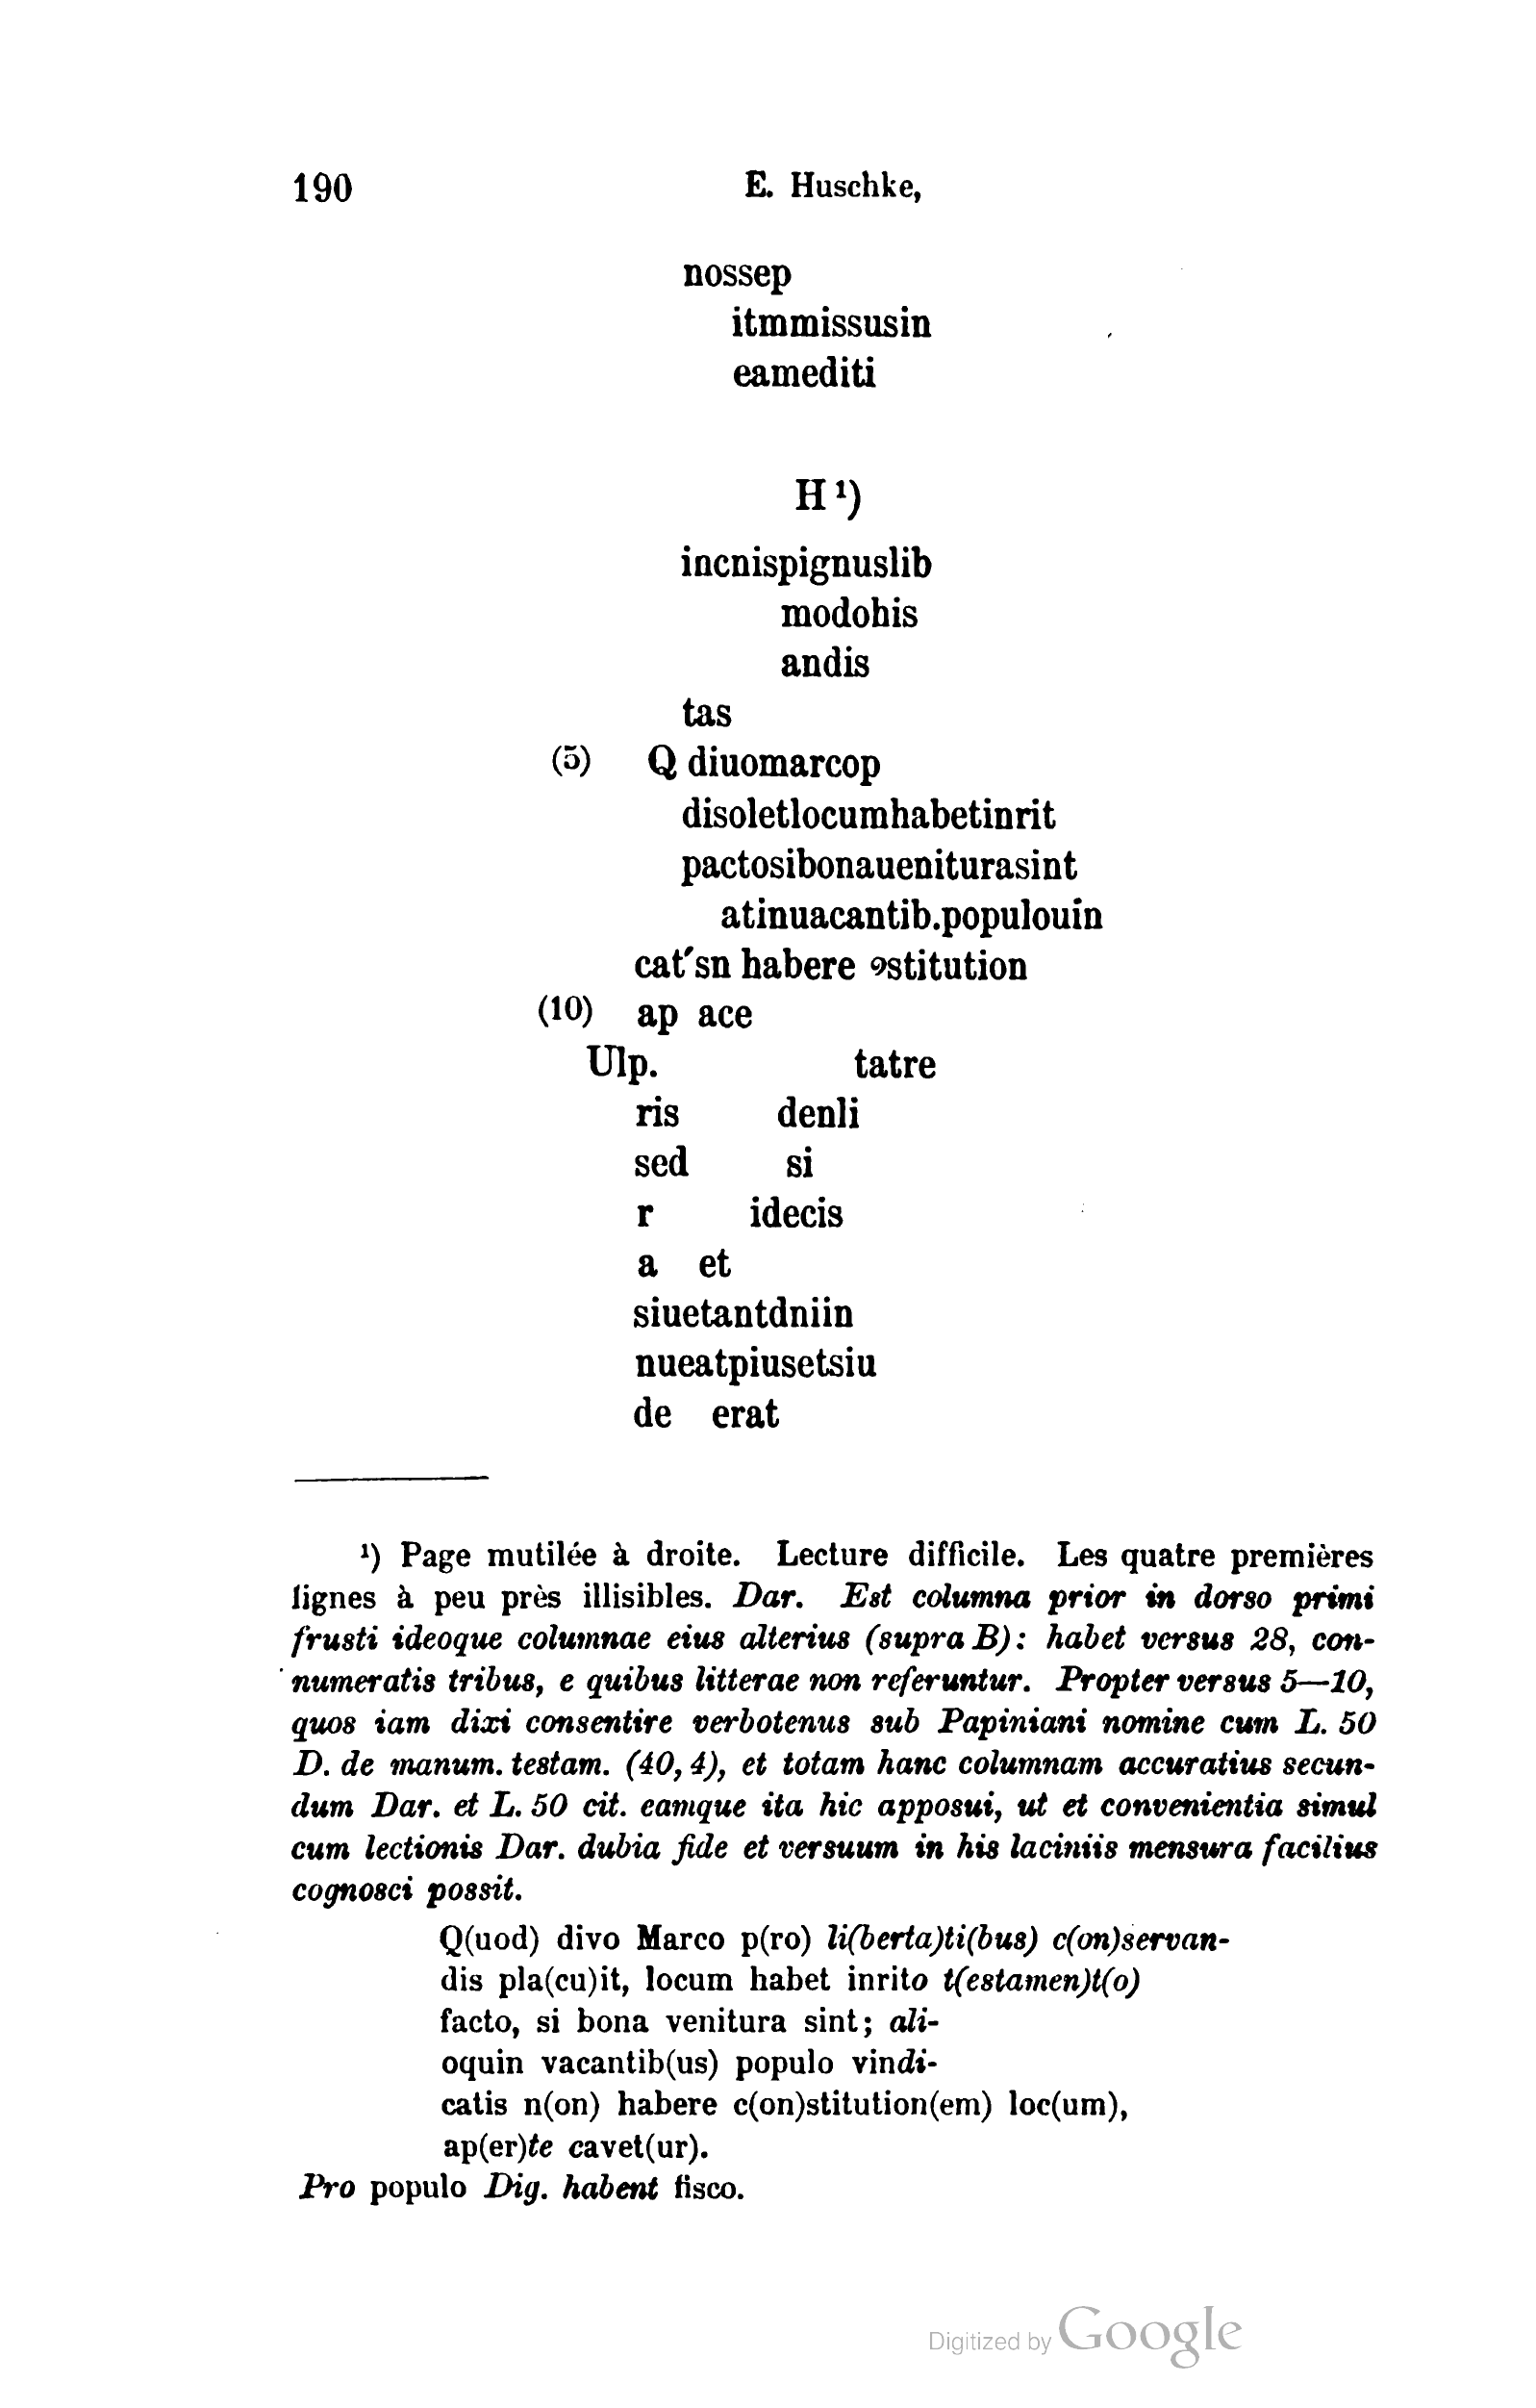 190 E. Huschke,
nossep
itmmissusin
eamediti
H ¹)
incnispignuslib
modohis
andis
tas
(5) Q diuomarcop
disoletlocumhabetinrit
pactosibonaueniturasint
atinuacantib.populouin
cat'sn habere ꝯstitution
(10) ap ace
Ulp. tatre
ris denli
sed si
r idecis
a et
siuetantdniin
nueatpiusetsiu
de erat
¹) Page mutilée à droite. Lecture difficile. Les quatre premières
lignes à peu près illisibles. Dar. Est columna prior in dorso primi
frusti ideoque columnae eius alterius (supra B): habet versus 28, con-
numeratis tribus, e quibus litterae non referuntur. Propter versus 5—10,
quos iam dixi consentire verbotenus sub Papiniani nomine cum L. 50
D. de manum. testam. (40, 4), et totam hanc columnam accuratius secun-
dum Dar. et L. 50 cit. eamque ita hic apposui, ut et convenientia simul
cum lectionis Dar. dubia fide et versuum in his laciniis mensura facilius
cognosci possit.
Q(uod) divo Marco p(ro) li(berta)ti(bus) c(on)servan-
dis pla(cu)it, locum habet inrito t(estamen)t(o)
facto, si bona venitura sint; ali-
oquin vacantib(us) populo vindi-
catis n(on) habere c(on)stitution(em) loc(um),
ap(er)te cavet(ur).
Pro populo Dig. habent fisco.
Digitized by Google